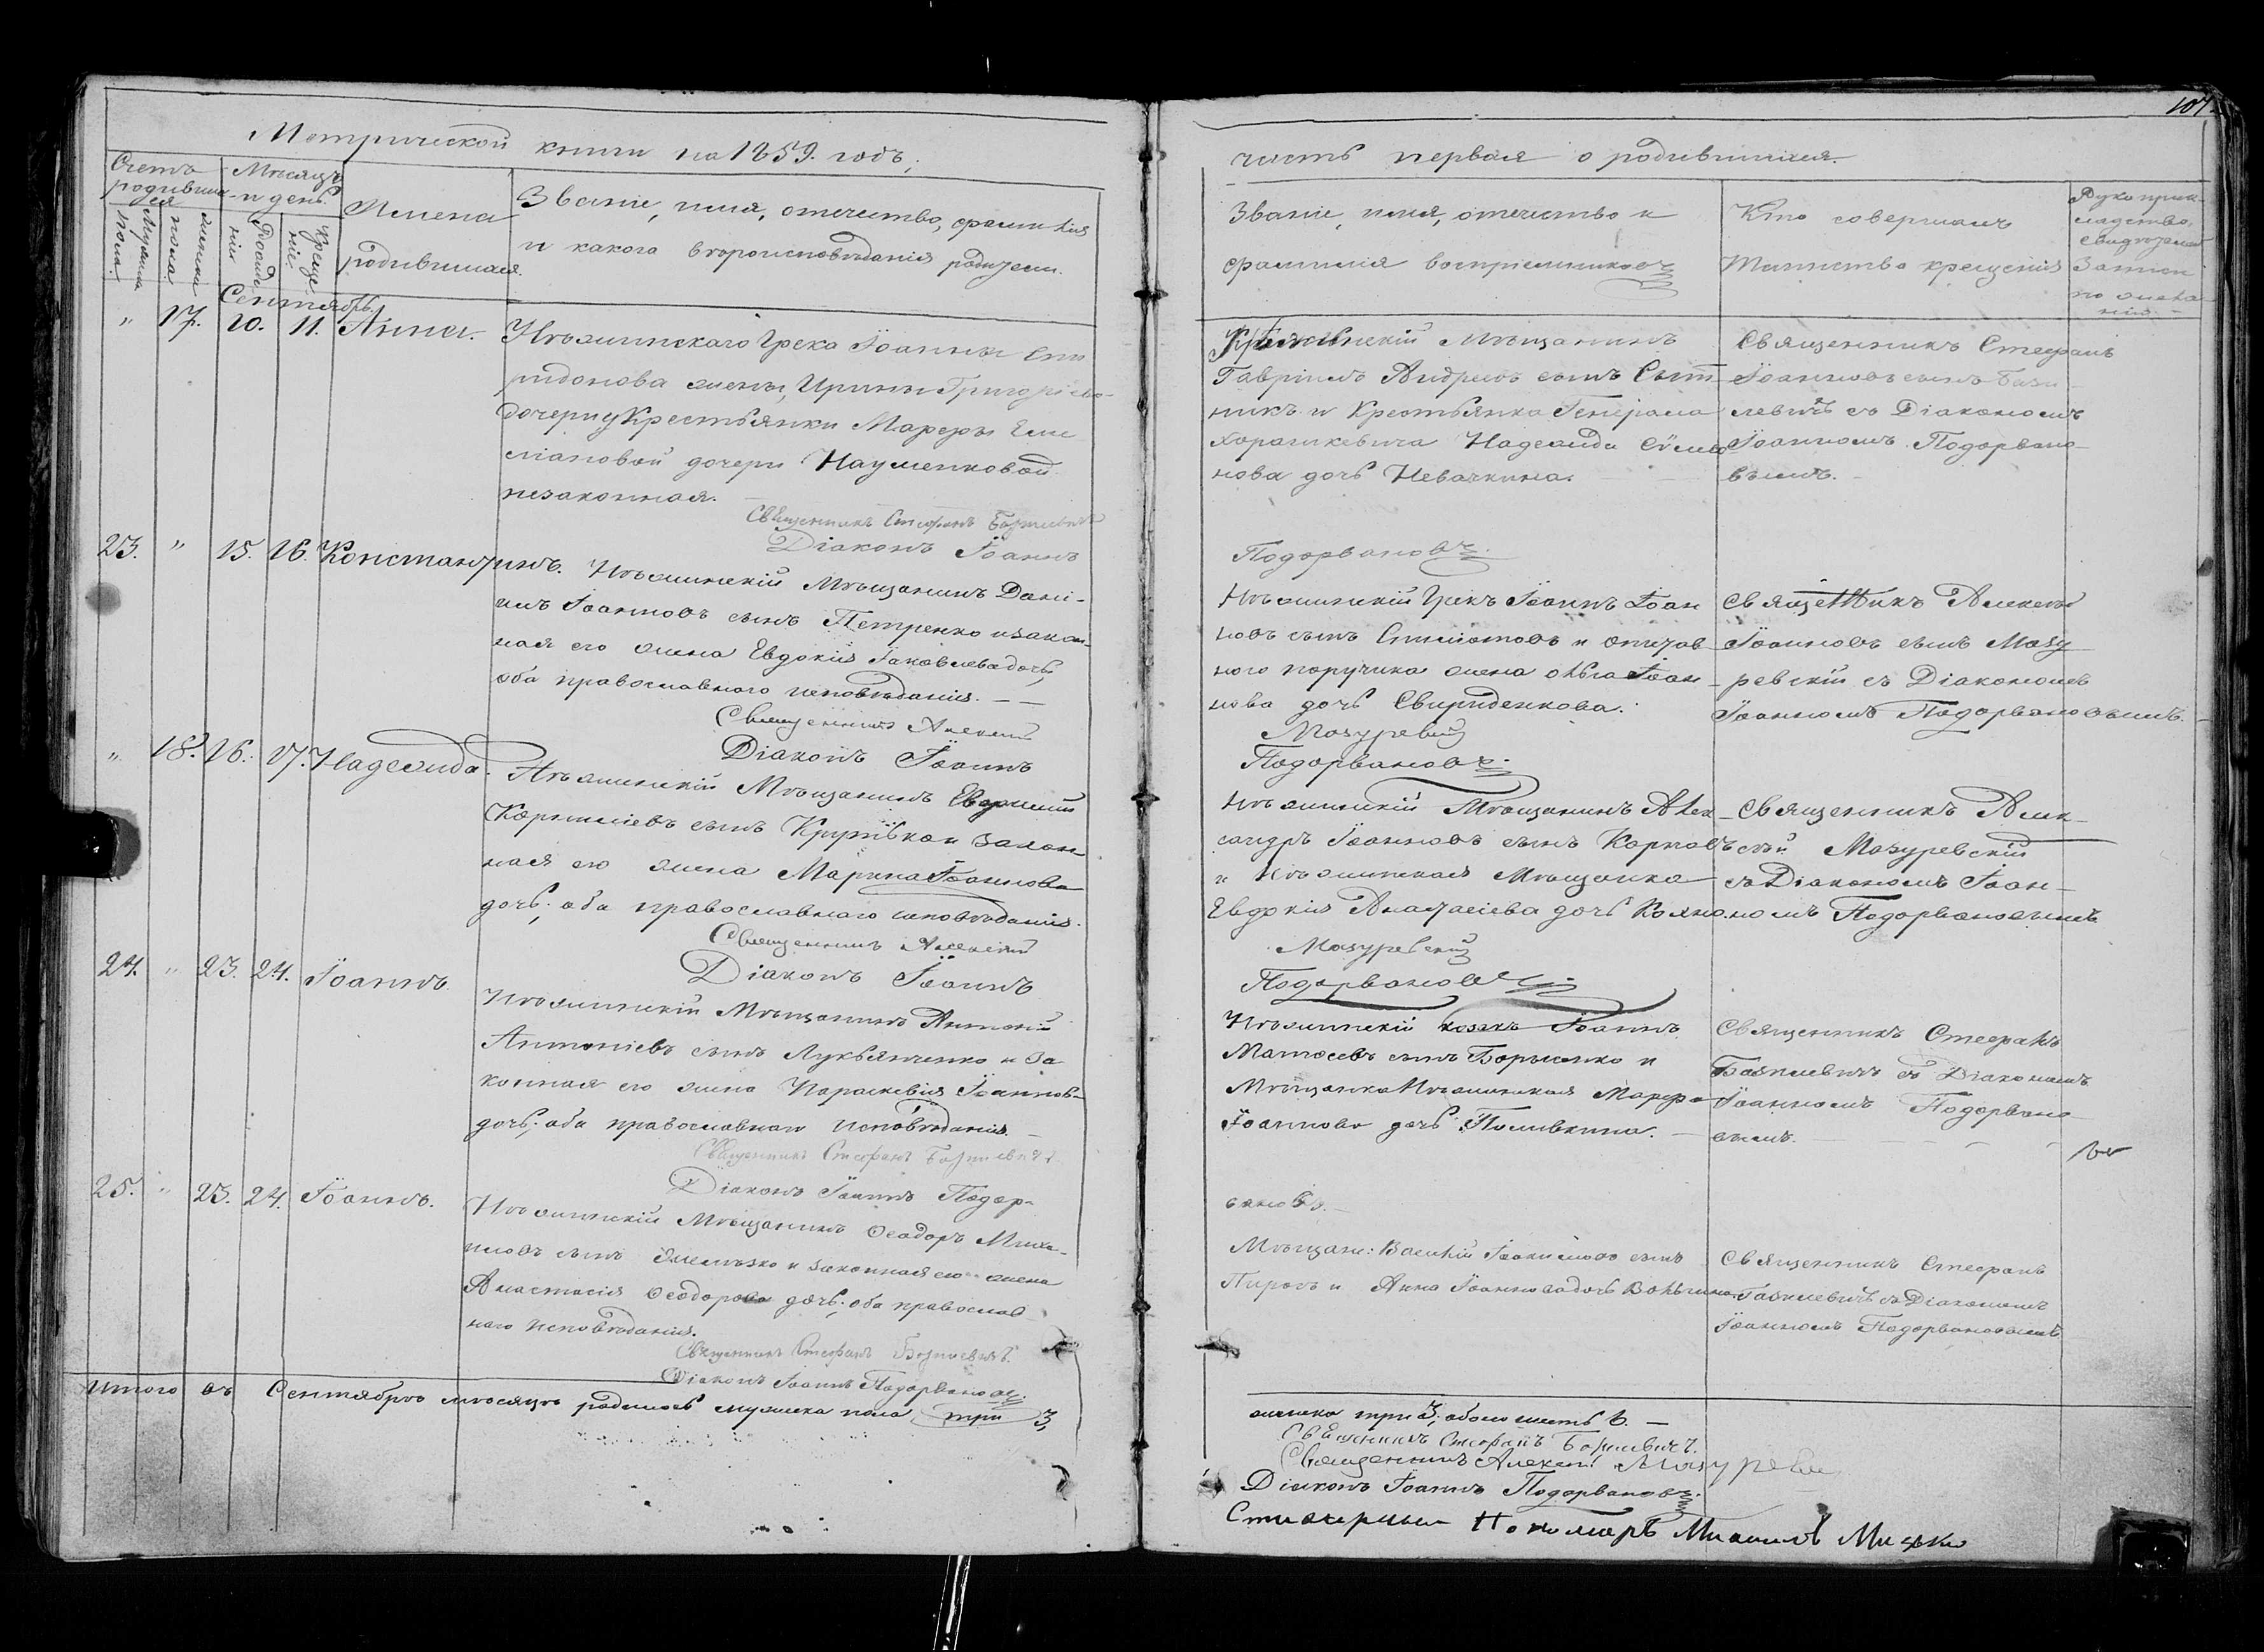 107.
Метрической книги на 1859. годъ,
часть первая о родившихся.
Счетъ родивших-ся
Мѣсяцъ и день.
Имена родившихся.
Званіе, имя, отчество, фамилія
и какого вѣроисповѣданія родители.
Званіе, имя, отчество и
фамилія воспріемниковъ
Кто совершалъ
Таинство крещенія
Рукоприк-
ладство
свидѣтелей
записи
по жела-
нію
Мужеска пола.
Женска пола.
Рожде-нія
Креще-нія.
Сентябрь.
" 17. 10. 11. Анна.
Нѣжинскаго Грека Іоанна Спи
ридонова жены, Ирины Григоріево-
дочери Крестьянки Марфы Еме
ліановой дочери Науменковой
незаконная.
Священникъ Стефанъ Базилевичъ
Діаконъ Іоаннъ
Подорвановъ.
Нѣжинскій Мѣщанинъ
Гавріилъ Андреевъ сынъ Сыт
никъ и Крестьянка Генерала
Харашкевича Надежда Симо
нова дочь Невачкина.
Священникъ Стефанъ
Іоанновъ сынъ Бази-
левичъ съ Діакономъ
Іоанномъ Подорвано-
вымъ.
23. " 15. 16. Константинъ.
Нѣжинскій Мѣщанинъ Дані-
илъ Іоанновъ сынъ Петренко и закон-
ная его жена Евдокія Іаковлева дочь,
оба православнаго исповѣданія.
Священникъ Алексій
Мазуревскій
Діаконъ Іоаннъ
Подорвановъ.
Нѣжинскій Грекъ Іоаннъ Іоан
новъ сынъ и отстав
ного поручика жена Ольга Іоан-
нова дочь Свириденкова.
Священникъ Алексѣй
Іоанновъ сынъ Мазу
ревскій съ Діакономъ
Іоанномъ Подорвановымъ.
" 18. 16. 17. Надежда.
Нѣжинскій Мѣщанинъ Евфимій
Корниліевъ сынъ и закон
ная его жена Марина Іоаннова
дочь, оба православнаго исповѣданія.
Священникъ Алексій
Мазуревскій
Діаконъ Іоаннъ
Подорвановъ
Нѣжинскій Мѣщанинъ Алек-
сандръ Іоанновъ сынъ Карповъ
и Нѣжинская Мѣщанка
Евдокія Анастасіева дочь
Священникъ Алек-
сѣй Мазуревскій
съ Діакономъ Іоан-
номъ Подорвановымъ
24. " 23. 24. Іоаннъ.
Нѣжинскій Мѣщанинъ Антоній
Антоніевъ сынъ Лукьянченко и за
конная его жена Параскевія Іоаннов-
дочь, оба православнаго исповѣданія.
Священникъ Стефанъ Базилевичъ
Діаконъ Іоаннъ Подор-
вановъ.
Нѣжинскій козакъ Іоаннъ
Матѳеевъ сынъ Борисенко и
Мѣщанка Нѣжинская Марфа
Іоаннова дочь Поливкина.
Священникъ Стефанъ
Базилевичъ съ Діакономъ
Іоанномъ Подорвано
вымъ.
25. " 23. 24. Іоаннъ.
Нѣжинскій Мѣщанинъ Ѳеодоръ Миха-
иловъ сынъ и законная его жена
Анастасія Ѳеодорова дочь, оба православ
наго исповѣданія.
Священникъ Стефанъ Базилевичъ.
Діаконъ Іоаннъ Подорвановъ.
Мѣщане: Василій Іоакимовъ сынъ
Пировъ и Анна Іоаннова дочь
Священникъ Стефанъ
Базилевичъ съ Діакономъ
Іоанномъ Подорвановымъ
Итого въ Сентябрѣ мѣсяцѣ родилось мужеска пола три 3,
женска три 3, обоего шесть 6.
Священникъ Стефанъ Базилевичъ.
Священникъ Алексій Мазуревскій
Діаконъ Іоаннъ Подорвановъ.
Стихарный Пономарь Михаилъ